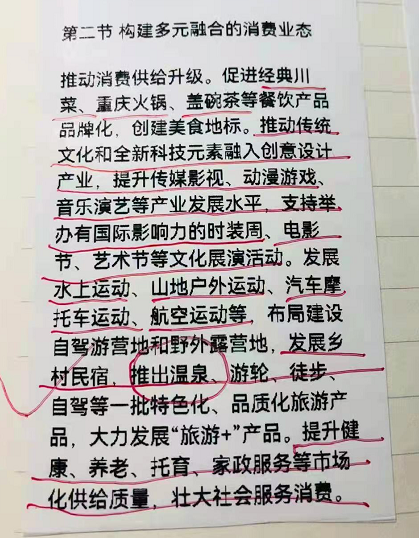 第二节 构建多元融合的消费业态
推动消费供给升级。促进经典川
菜、重庆火锅、盖碗茶等餐饮产品
品牌化，创建美食地标。推动传统
文化和全新科技元素融入创意设计
产业，提升传媒影视、动漫游戏、
音乐演艺等产业发展水平，支持举
办有国际影响力的时装周、电影
节、艺术节等文化展演活动。发展
水上运动、山地户外运动、汽车摩
托车运动、航空运动等，布局建设
自驾游营地和野外露营地，发展乡
村民宿，推出温泉、游轮、徒步、
自驾等一批特色化、品质化旅游产
品，大力发展“旅游+”产品。提升健
康、养老、托育、家政服务等市场
化供给质量，壮大社会服务消费。